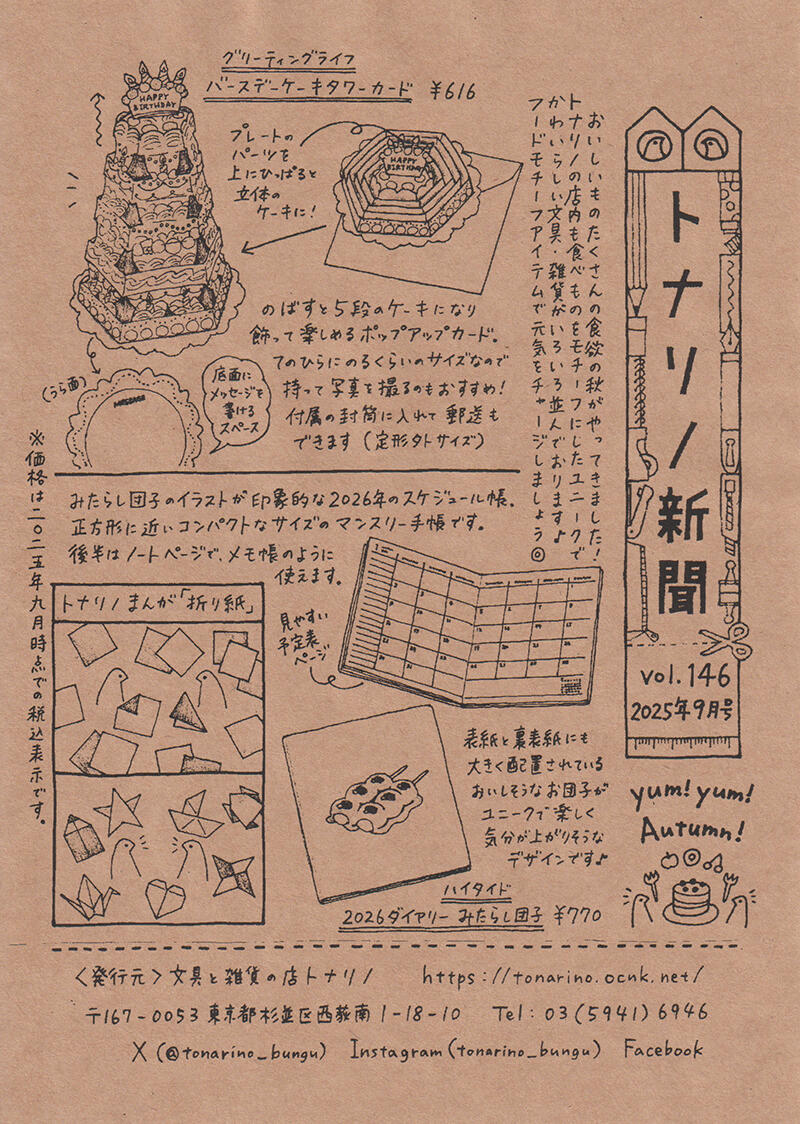 トナリノ新聞
vol.146
2025年9月号
yum! yum!
Autumn!
おいしいものたくさんの食欲の秋がやってきました!
トナリノの店内も食べものをモチーフにしたユニークで
かわいらしい文具・雑貨がいろいろ並んでおります♪
フードモチーフアイテムで元気をチャージしましょう◎
グリーティングライフ
バースデーケーキタワーカード ¥616
HAPPY
BIRTHDAY
プレートの
パーツを
上にひっぱると
立体の
ケーキに!
HAPPY
BIRTHDAY
のばすと5段のケーキになり
飾って楽しめるポップアップカード。
てのひらにのるくらいのサイズなので
持って写真を撮るのもおすすめ!
付属の封筒に入れて郵送も
できます(定形外サイズ)
(うら面)
MESSAGE
底面に
メッセージを
書ける
スペース
みたらし団子のイラストが印象的な2026年のスケジュール帳。
正方形に近いコンパクトなサイズのマンスリー手帳です。
後半はノートページで、メモ帳のように
使えます。
見やすい
予定表
ページ
表紙と裏表紙にも
大きく配置されている
おいしそうなお団子が
ユニークで楽しく
気分が上がりそうな
デザインです♪
ハイタイド
2026ダイアリー みたらし団子 ¥770
トナリノまんが「折り紙」
※価格は二〇二五年九月時点での税込表示です。
<発行元>文具と雑貨の店トナリノ https://tonarino.ocnk.net/
〒167-0053 東京都杉並区西荻南1-18-10 Tel: 03(5941)6946
X (@tonarino_bungu) Instagram (tonarino_bungu) Facebook